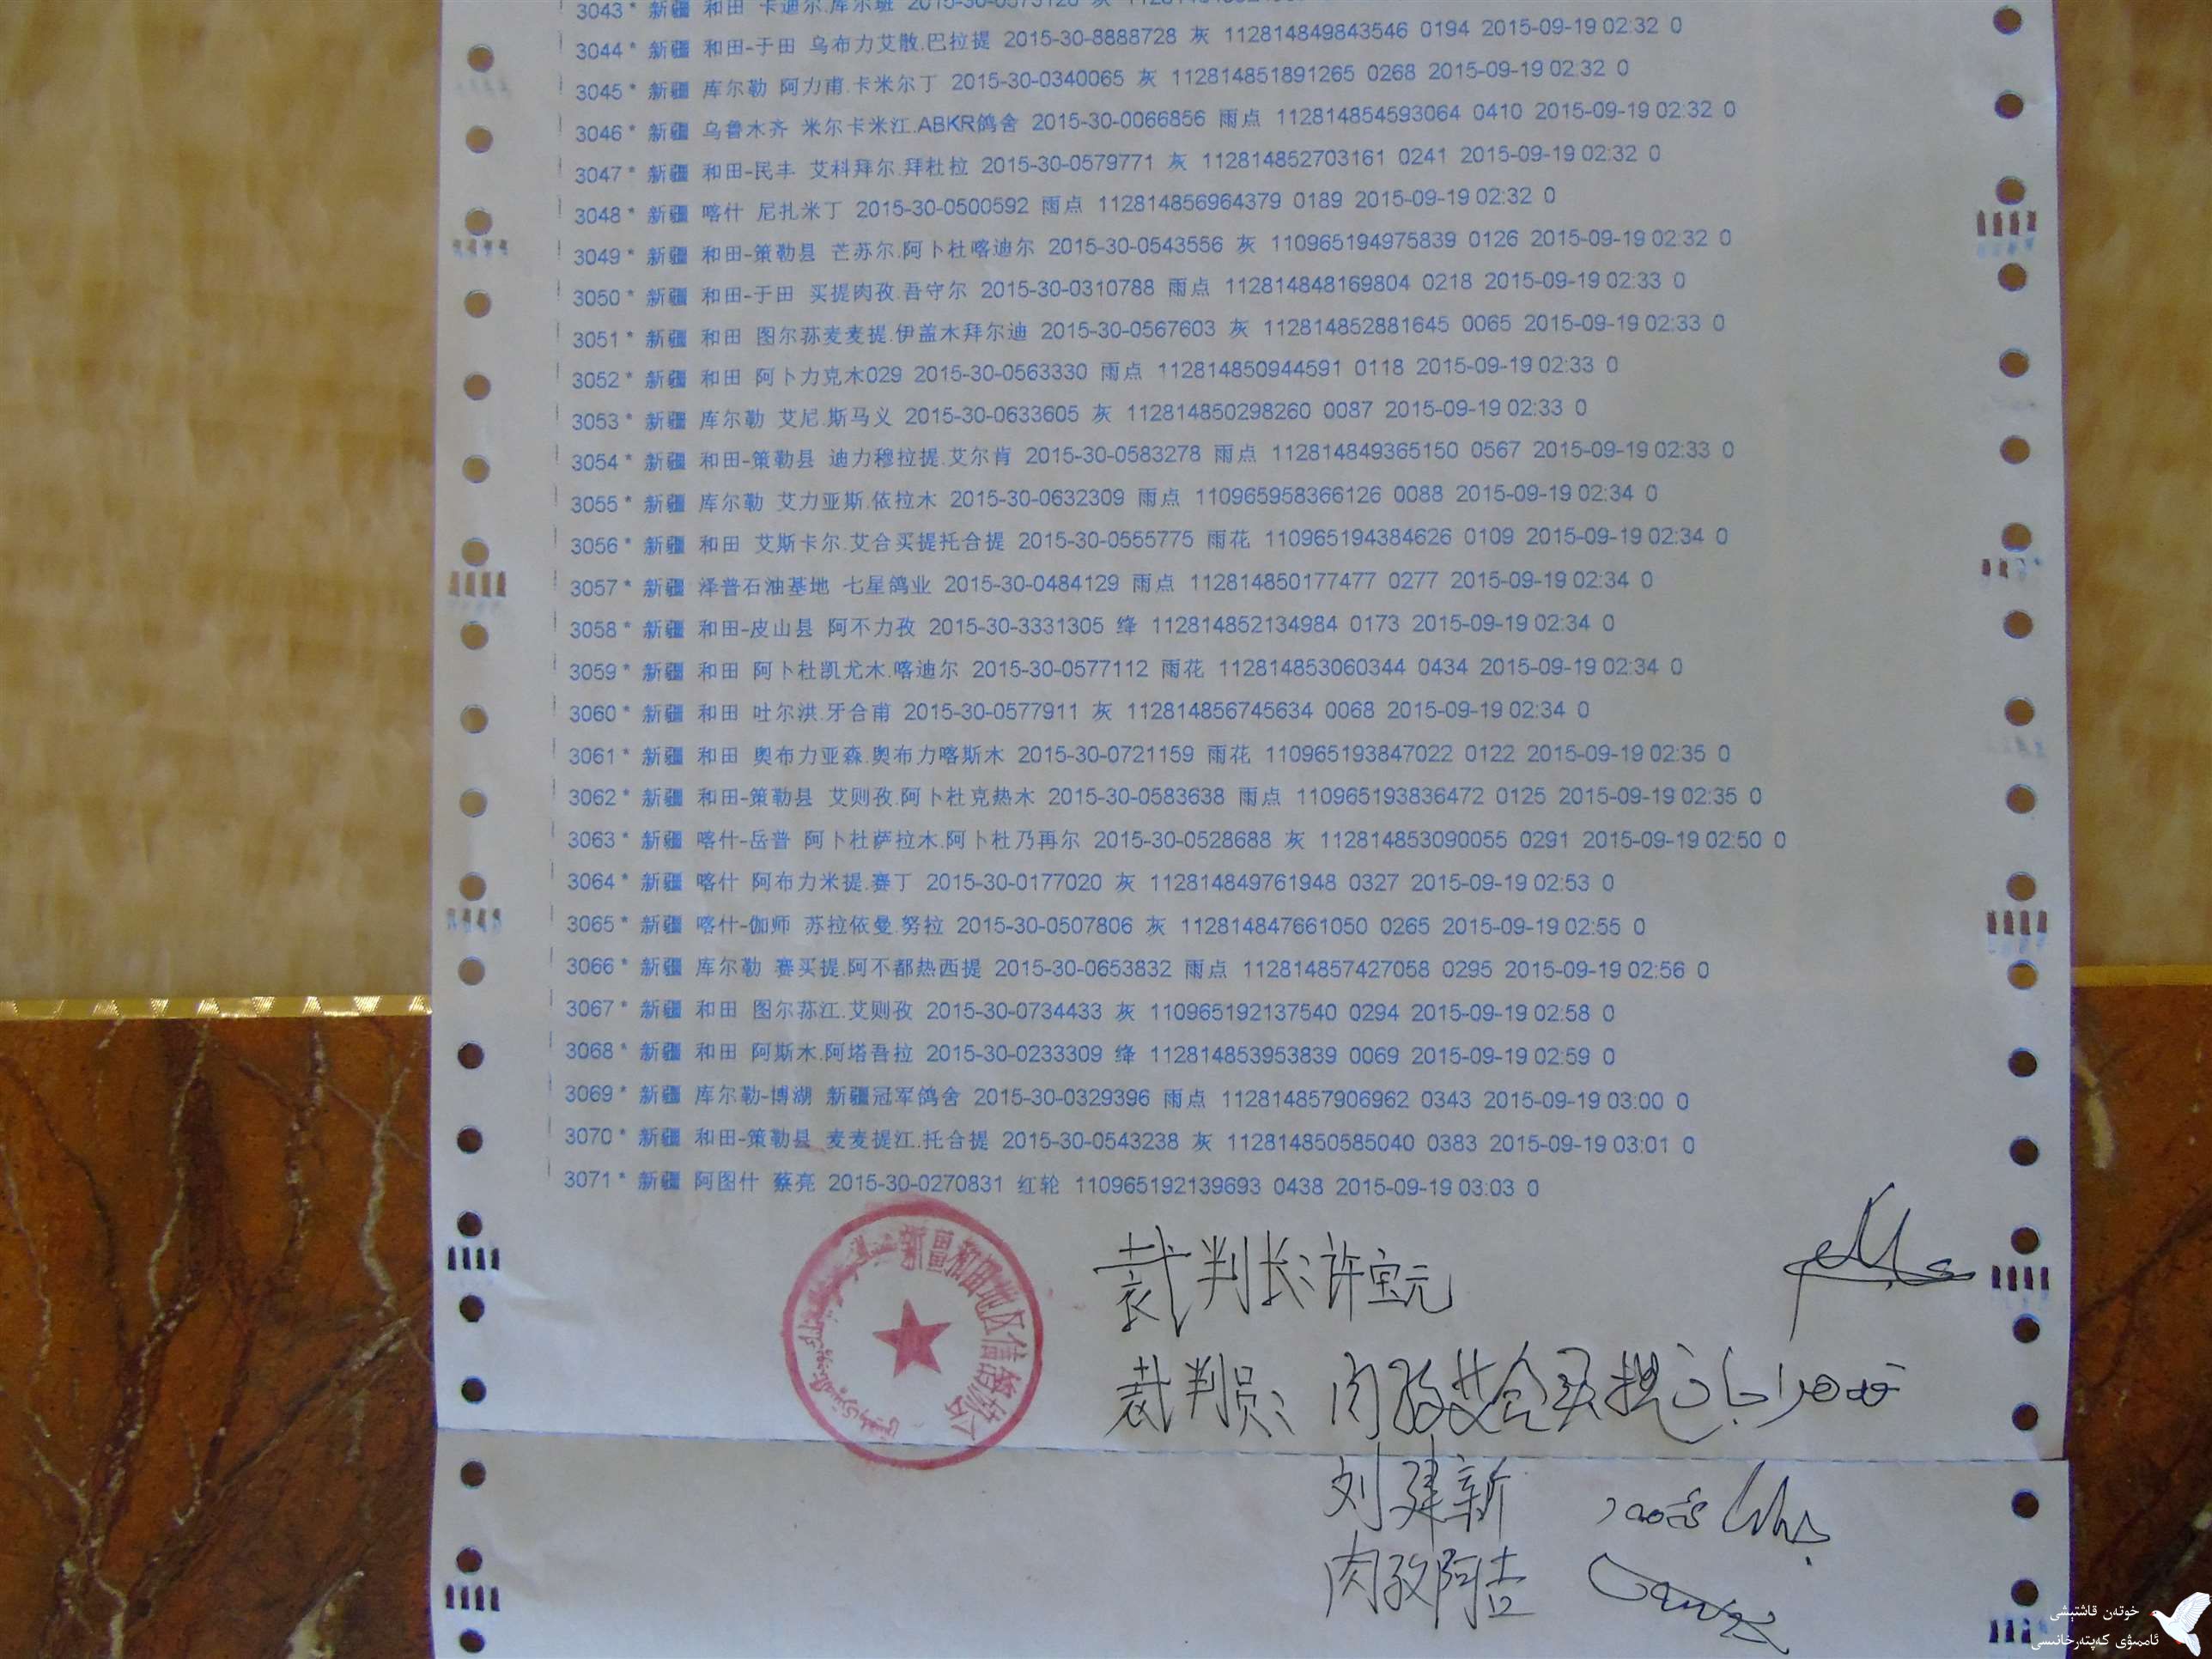 3043 * 新疆 和田 卡迪尔.库尔班
3044 * 新疆 和田-于田 乌布力艾散.巴拉提 2015-30-8888728 灰 112814849843546 0194 2015-09-19 02:32 0
3045 * 新疆 库尔勒 阿力甫.卡米尔丁 2015-30-0340065 灰 112814851891265 0268 2015-09-19 02:32 0
3046 * 新疆 乌鲁木齐 米尔卡米江.ABKR鸽舍 2015-30-0066856 雨点 112814854593064 0410 2015-09-19 02:32 0
3047 * 新疆 和田-民丰 艾科拜尔.拜杜拉 2015-30-0579771 灰 112814852703161 0241 2015-09-19 02:32 0
3048 * 新疆 喀什 尼扎米丁 2015-30-0500592 雨点 112814856964379 0189 2015-09-19 02:32 0
3049 * 新疆 和田-策勒县 芒苏尔.阿卜杜喀迪尔 2015-30-0543556 灰 110965194975839 0126 2015-09-19 02:32 0
3050 * 新疆 和田-于田 买提肉孜.吾守尔 2015-30-0310788 雨点 112814848169804 0218 2015-09-19 02:33 0
3051 * 新疆 和田 图尔荪麦麦提.伊盖木拜尔迪 2015-30-0567603 灰 112814852881645 0065 2015-09-19 02:33 0
3052 * 新疆 和田 阿卜力克木029 2015-30-0563330 雨点 112814850944591 0118 2015-09-19 02:33 0
3053 * 新疆 库尔勒 艾尼.斯马义 2015-30-0633605 灰 112814850298260 0087 2015-09-19 02:33 0
3054 * 新疆 和田-策勒县 迪力穆拉提.艾尔肯 2015-30-0583278 雨点 112814849365150 0567 2015-09-19 02:33 0
3055 * 新疆 库尔勒 艾力亚斯.依拉木 2015-30-0632309 雨点 110965958366126 0088 2015-09-19 02:34 0
3056 * 新疆 和田 艾斯卡尔.艾合买提托合提 2015-30-0555775 雨花 110965194384626 0109 2015-09-19 02:34 0
3057 * 新疆 泽普石油基地 七星鸽业 2015-30-0484129 雨点 112814850177477 0277 2015-09-19 02:34 0
3058 * 新疆 和田-皮山县 阿不力孜 2015-30-3331305 绛 112814852134984 0173 2015-09-19 02:34 0
3059 * 新疆 和田 阿卜杜凯尤木.喀迪尔 2015-30-0577112 雨花 112814853060344 0434 2015-09-19 02:34 0
3060 * 新疆 和田 吐尔洪.牙合甫 2015-30-0577911 灰 112814856745634 0068 2015-09-19 02:34 0
3061 * 新疆 和田 奥布力亚森.奥布力喀斯木 2015-30-0721159 雨花 110965193847022 0122 2015-09-19 02:35 0
3062 * 新疆 和田-策勒县 艾则孜.阿卜杜克热木 2015-30-0583638 雨点 110965193836472 0125 2015-09-19 02:35 0
3063 * 新疆 喀什-岳普 阿卜杜萨拉木.阿卜杜乃再尔 2015-30-0528688 灰 112814853090055 0291 2015-09-19 02:50 0
3064 * 新疆 喀什 阿布力米提.赛丁 2015-30-0177020 灰 112814849761948 0327 2015-09-19 02:53 0
3065 * 新疆 喀什-伽师 苏拉依曼.努拉 2015-30-0507806 灰 112814847661050 0265 2015-09-19 02:55 0
3066 * 新疆 库尔勒 赛买提.阿不都热西提 2015-30-0653832 雨点 112814857427058 0295 2015-09-19 02:56 0
3067 * 新疆 和田 图尔荪江.艾则孜 2015-30-0734433 灰 110965192137540 0294 2015-09-19 02:58 0
3068 * 新疆 和田 阿斯木.阿塔吾拉 2015-30-0233309 绛 112814853953839 0069 2015-09-19 02:59 0
3069 * 新疆 库尔勒-博湖 新疆冠军鸽舍 2015-30-0329396 雨点 112814857906962 0343 2015-09-19 03:00 0
3070 * 新疆 和田-策勒县 麦麦提江.托合提 2015-30-0543238 灰 112814850585040 0383 2015-09-19 03:01 0
3071 * 新疆 阿图什 蔡亮 2015-30-0270831 红轮 110965192139693 0438 2015-09-19 03:03 0
新疆和田地区信鸽协会
裁判长:许宝元
裁判员: 肉孜艾合买提
刘建新
肉孜阿吉
خوتەن قاشتېشى
ئاممىۋى كەپتەرخانىسى